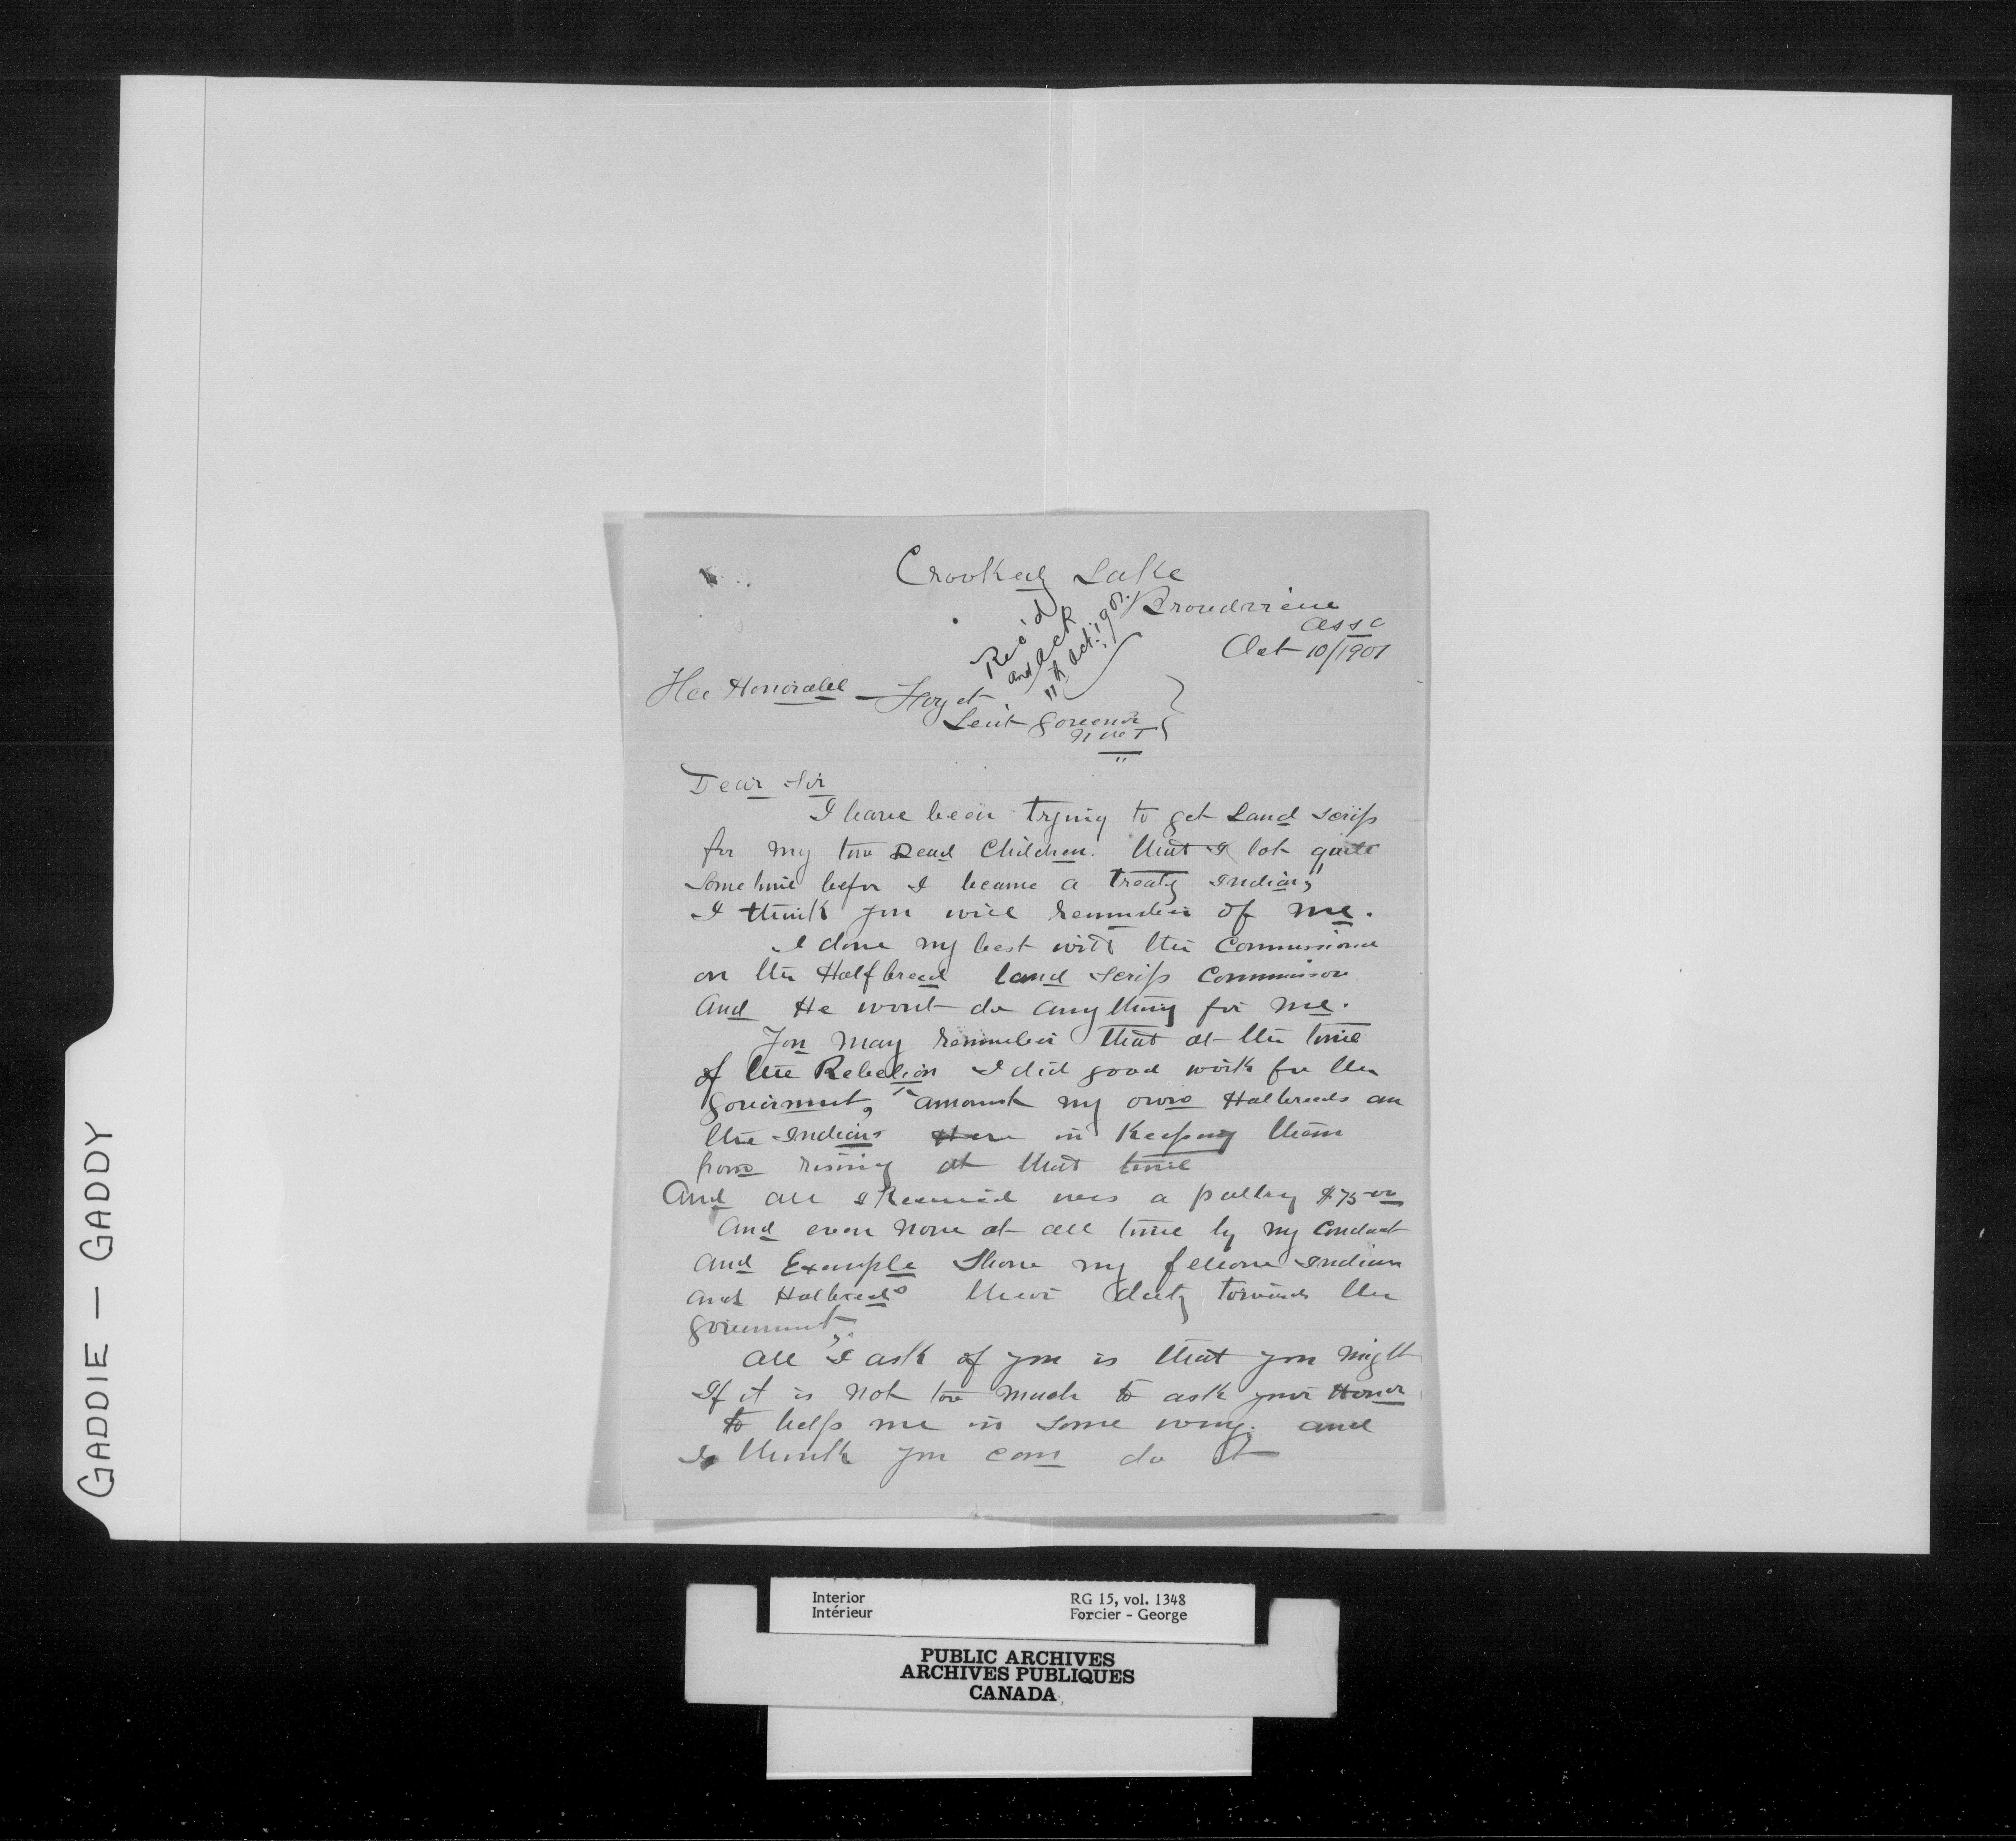 Crooked Lake
Broadview
Assa
Oct 10/1901
Rec'd
and ack
11th Oct. 1901.
His Honorable Forget
Leut Govenor
N W T
Dear Sir
I have been trying to get Land Scrip
for my two Dead Children. that I lost quite
Sometime befor I became a treaty Indian,
I think you will remember of me.
I done my best with the Commissioner
on the Halfbreed land Scrip Commisson
And He wont do anything for me.
You may remember that at the time
of the Rebelion I did good work for the
Goverment, amounst my own Halbreeds an
the Indians Here in Keeping them
from rising at that time
And all I Received was a paltry $75.00
And even now at all time by my Conduct
And Example Show my fellow Indian
And Halbreeds their duty towards the
Government,
All I ask of you is that you might
If it is not too much to ask your Honor
to help me in some way. and
I think you can do it
GADDIE — GADDY
Interior
Intérieur
RG 15, vol. 1348
Forcier - George
PUBLIC ARCHIVES
ARCHIVES PUBLIQUES
CANADA